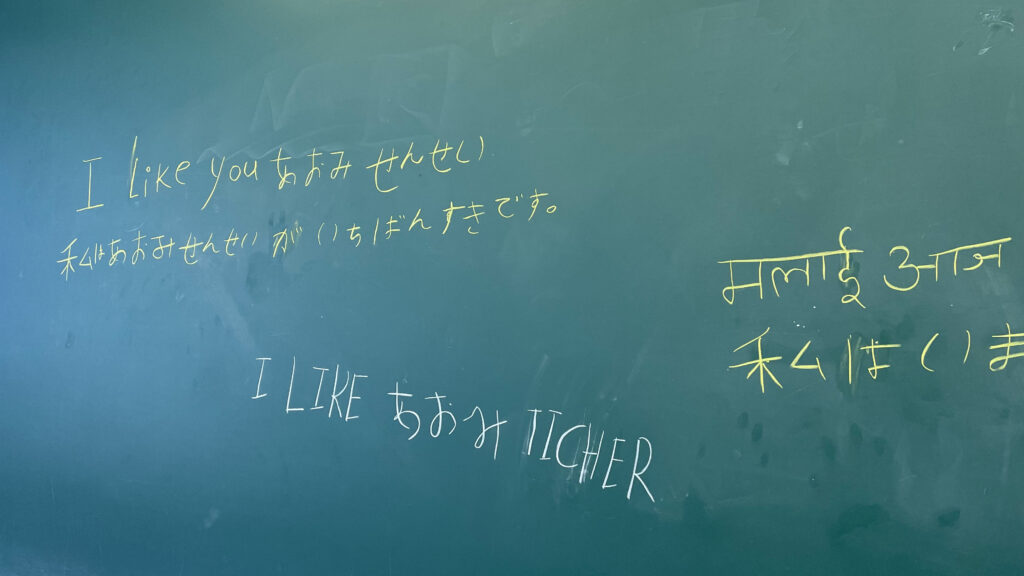 I like you あおみ せんせい
私はあおみせんせい が いちばんすきです。
मलाई आज
私はいま
I LIKE あおみ TICHER